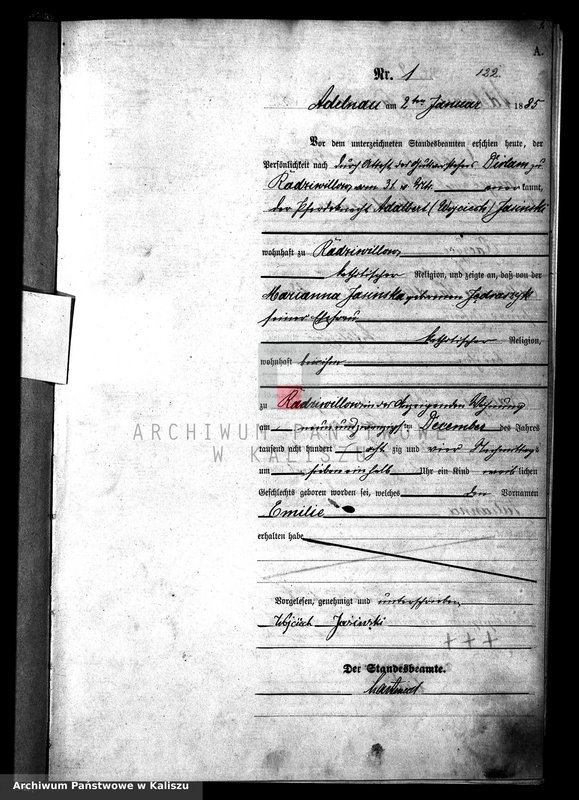 A.
Nr. 1 122.
Adelnau am 2ten Januar 1885
Vor dem unterzeichneten Standesbeamten erschien heute, der
Persönlichkeit nach durch Attest des Gutsvorstehers zu
Radziwillow vom 31 v Mts. kannt,
der Pferdeknecht Adalbert (Wojciech) Jasinski
wohnhaft zu Radziwillow
katholischer Religion, und zeigte an, daß von der
Marianna Jasinska geborenen Jędraszyk
seiner Ehefrau
katholischer Religion,
wohnhaft bei ihm
zu Radziwillow in der Anzeigenden Wohnung
am neun und zwanzigsten December des Jahres
tausend acht hundert acht zig und vier Nachmittags
um sieben ein halb Uhr ein Kind weib lichen
Geschlechts geboren worden sei, welches den Vornamen
Emilie
erhalten habe
Vorgelesen, genehmigt und unterschrieben
Wojciech Jasinski
+++
Der Standesbeamte.
ARCHIWUM PAŃSTWOWE
W KALISZU
Archiwum Państwowe w Kaliszu